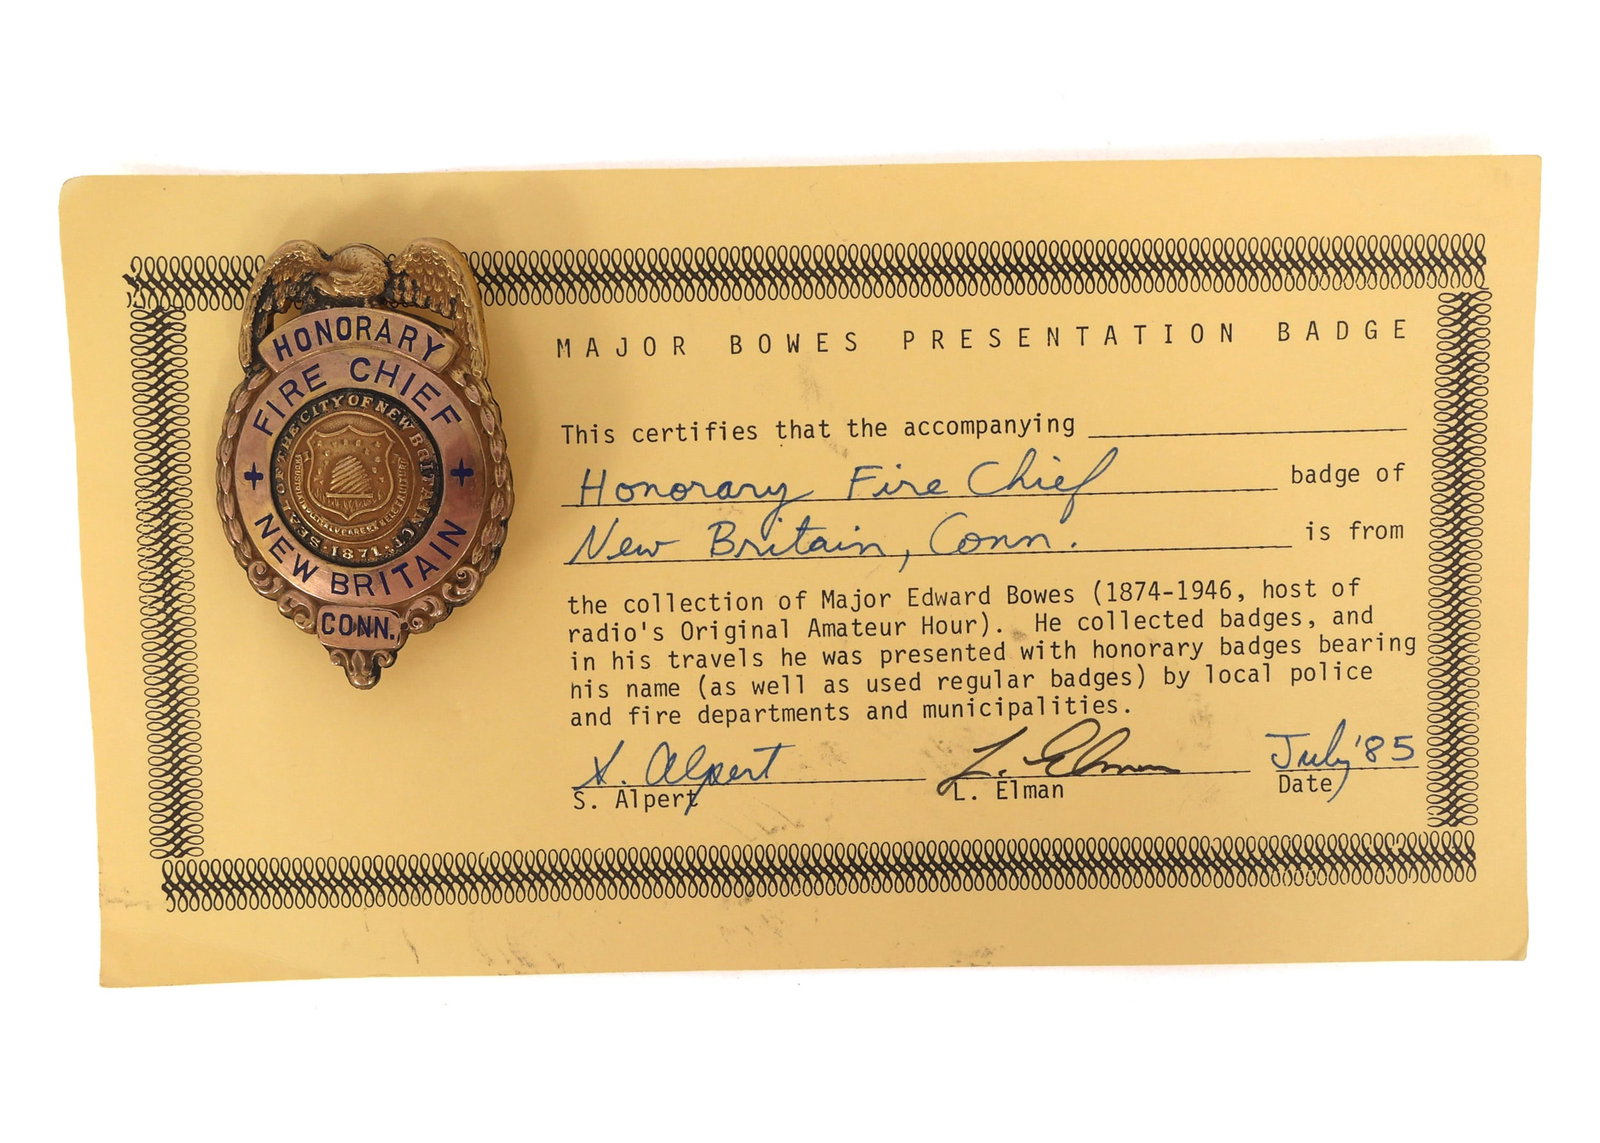 HONORARY
FIRE CHIEF
SEAL OF THE CITY OF NEW BRITAIN CT. 1871
NEW BRITAIN
CONN.
MAJOR BOWES PRESENTATION BADGE
This certifies that the accompanying
Honorary Fire Chief badge of
New Britain, Conn. is from
the collection of Major Edward Bowes (1874-1946, host of
radio's Original Amateur Hour). He collected badges, and
in his travels he was presented with honorary badges bearing
his name (as well as used regular badges) by local police
and fire departments and municipalities.
S. Alpert L. Elman July '85
S. Alpert L. Elman Date